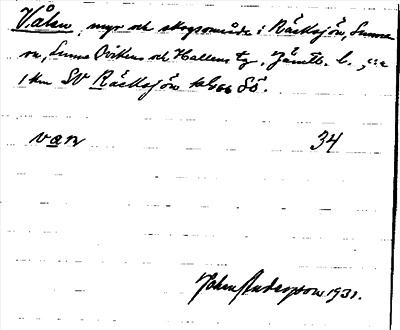 Vålen, myr och skogsområde i Räcksjön, Sunne
sn, Sunne Ovikens och Hallens tg, Jämtl. l.,
1 km SV Räcksjön kbl 66 SÖ.
van 34
John Anderson 1931.